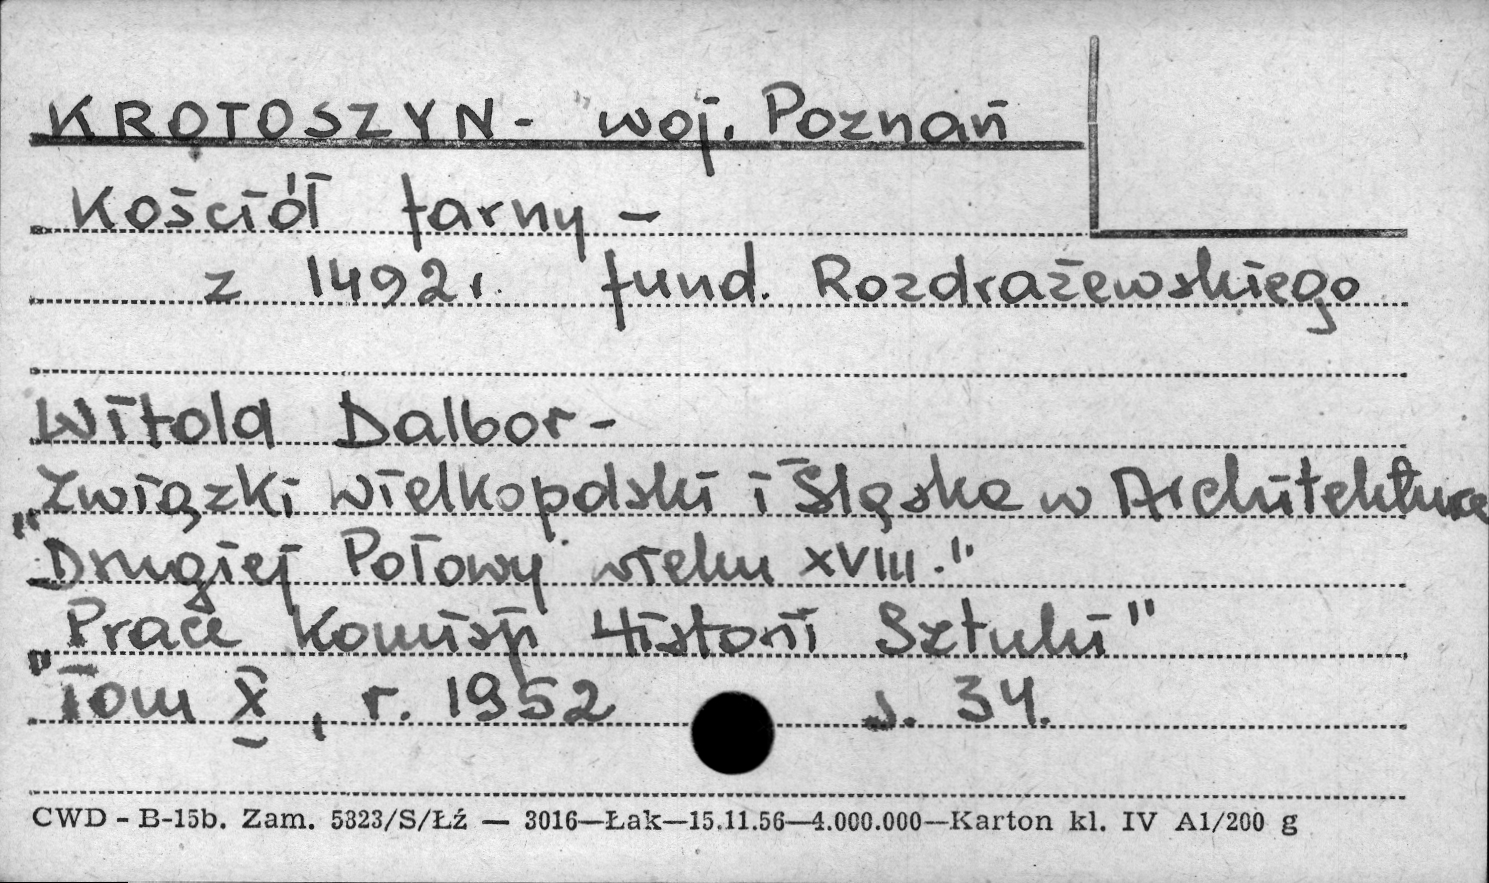 KROTOSZYN - woj. Poznań
Kościół farny -
z 1492 r. fund. Rozdrażewskiego
Witold Dalbor -
"Związki wielkopolski i Śląska w Architekturze
Drugiej Połowy wieku XVIII."
"Prace Komisji Historii Sztuki"
Tom X, r. 1952 s. 34.
CWD - B-15b. Zam. 5323/S/Łź — 3016—Łak—15.11.56—4.000.000—Karton kl. IV A1/200 g